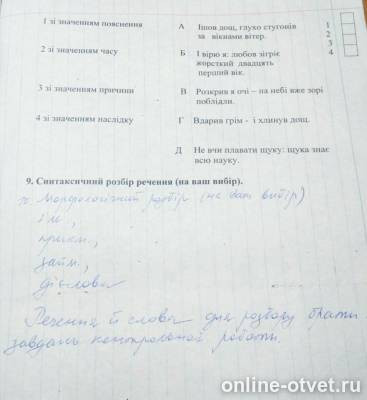 1 зі значенням пояснення
А Ішов дощ, глухо стугонів
за вікнами вітер.
1
2
3
4
2 зі значенням часу
Б І вірю я: любов зігріє
жорсткий двадцять
перший вік.
3 зі значенням причини
В Розкрив я очі – на небі вже зорі
поблідли.
4 зі значенням наслідку
Г Вдарив грім - і хлинув дощ.
Д Не вчи плавати щуку: щука знає
всю науку.
9. Синтаксичний розбір речення (на ваш вибір).
Морфологічний розбір (на ваш вибір)
ім.,
прикм.,
займ.,
дієслова
Речення й слова для розбору брати
завдань контрольної роботи.
online-otvet.ru